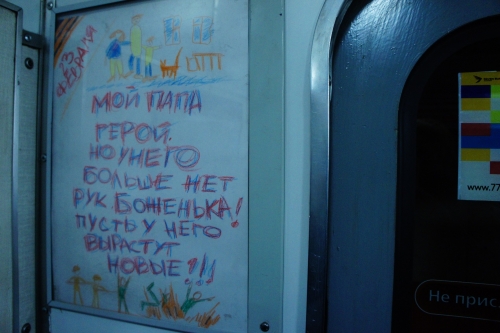 23
ФЕВРАЛЯ
МОЙ ПАПА
ГЕРОЙ.
НО У НЕГО
БОЛЬШЕ НЕТ
РУК. БОЖЕНЬКА!
ПУСТЬ У НЕГО
ВЫРАСТУТ
НОВЫЕ!!!
www.77
Не прис